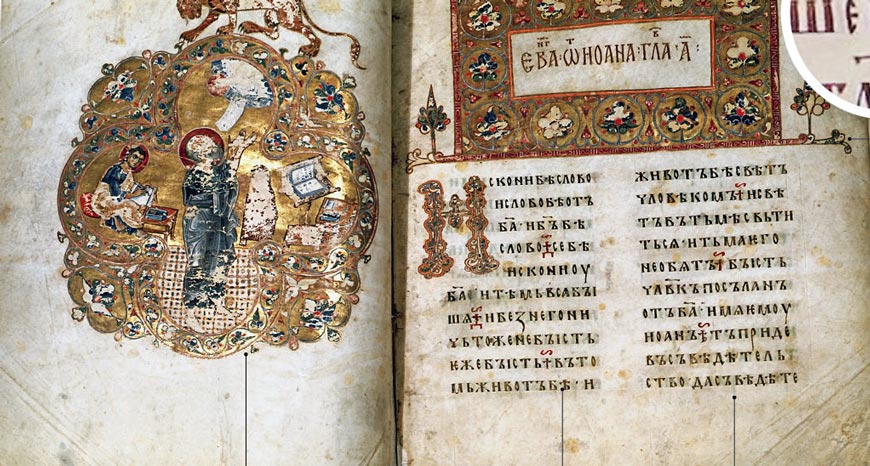 ЕВА҃ ѾИОАНА · ГЛА · А҃ :
ИСКОНИ БѢ СЛОВО
И СЛОВО БѢ ОТЪ
БА҃ · И БЪ҃ БѢ
СЛОВО · СЕ БѢ
ИСКОНИ ОУ
БА҃ · И ТѢМЬ ВЬСА БЫ
ШѦ · И БЕЗ НЕГО НИ
ЧЬТОЖЕ НЕ БЫСТЬ
ѤЖЕ БЫСТЬ · ВЪ ТО
МЬ ЖИВОТЪ БѢ · И
ЖИВОТЪ БѢ СВѢТЪ
ЧЛОВѢКОМЪ · И СВѢ
ТЪ ВЪ ТЬМѢ СВЬТИ
ТЬСѦ · И ТЬМА ѤГО
НЕ ОБѦТЪ · БЫСТЬ
ЧЛ҃ВКЪ ПОСЪЛАНЪ
ОТЪ БА҃ · ИМѦ ѤМОУ
ИОАНЪ · ТЪ ПРИДЕ
ВЪ СЪВѢДѢТЕЛЬ
СТВО · ДА СЪВѢДѢТЕ